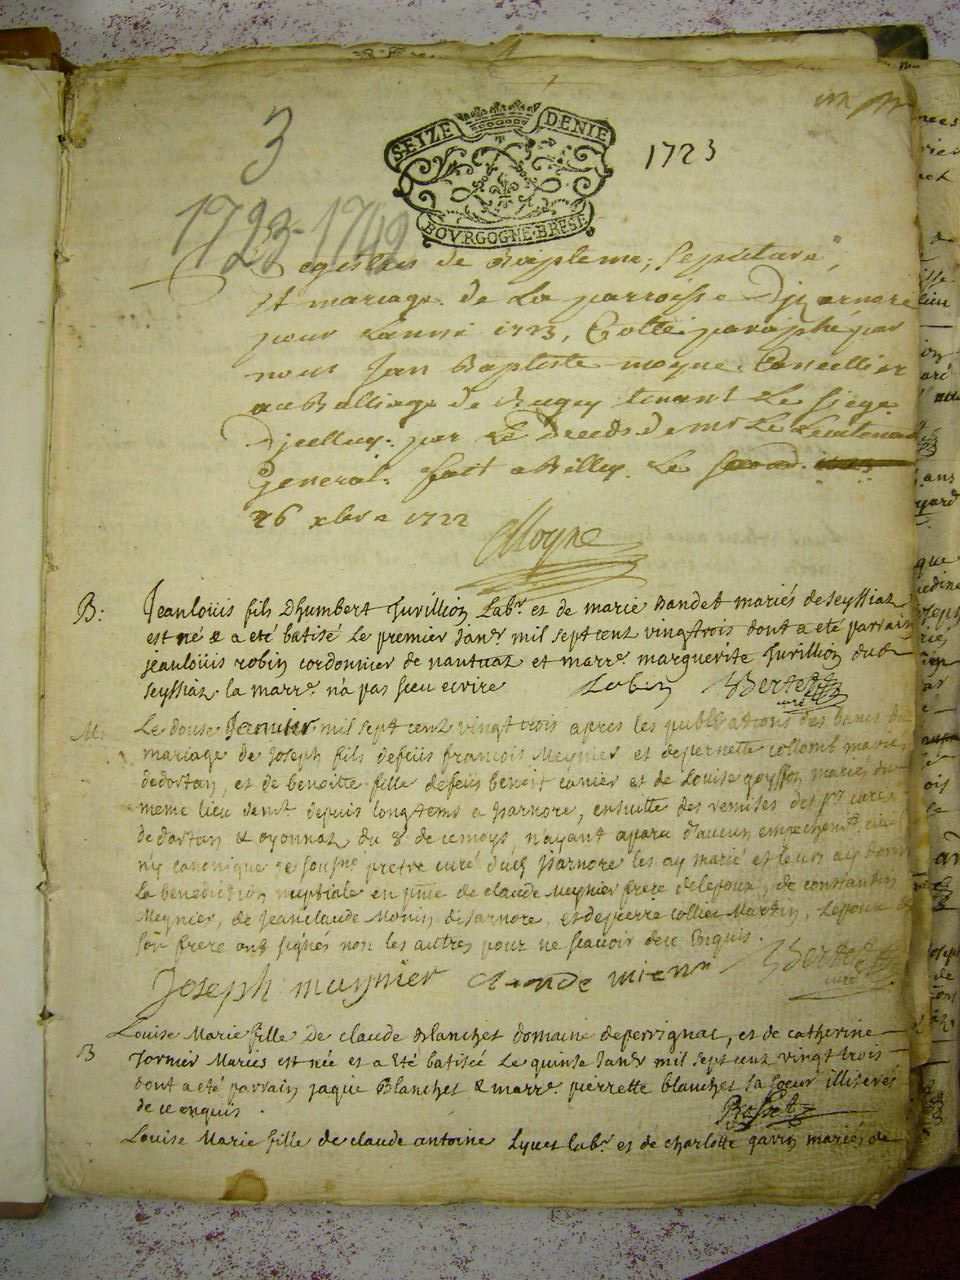 3
SEIZE DENIE
BOVRGOGNE·BRESE
1723
1723-1742
Registres de Bapteme, Sepulture,
Et mariage de La parroisse Djzarnore
pour Lannée 1723, Cotté paraphé par
nous Jean Baptiste moyne Conseillier
au Balliage de Bugey tenant Le siege
Djcelluy par Le Deceds de Mr Le Lieutenant
General. fait a Belley Le
26 xbre 1722
Moyne
B: Jeanloüis fils Dhumbert Juvillion Labr. et de marie Bandet mariés de Seyssiat
est né & a eté batisé Le premier Janvr mil sept cent vingtrois dont a eté parrain
jeanloüis robin cordonnier de nantuat et marre. marguerite Juvillion du d
Seyssiat la marre. n'a pas sceu ecrire Robin Bertet curé
M: Le douse Janvier mil sept cent vingt trois apres les publications des bancs du
mariage de Joseph fils defeüs françois Meynier et depernette collomb mariés
dedortan, et de benoitte fille defeüs benoit et de Louise goysson mariés du
meme lieu demt. depuis longtems a Isarnore, ensuitte des remises des srs. curés
de dortan & oyonnat du 8 de ce moys n'ayant aparu d'aucun empechemt. civil
ny canonique je sousne. pretre curé dud. Isarnore les ay marié et leur ay donné
La benediction nuptiale en pnce de claude Meynier frere delepoux, de constantin
Meynier, de Jeanclaude Monin disarnore, et depierre collier Martin, Lepoux &
son frere ont signés non les autres pour ne scavoir de ce Enquis.
Joseph muynier claude Bertet curé
B Louise Marie fille De claude Blanchet domaine depervignat, et de catherine
Tornier Mariés est née et a eté batisée Le quinse Janvr mil sept cent vingt trois
dont a eté parrain jaque Blanchet & marre. pierrette blanchet sa soeur illiterés
de ce enquis.
Louise Marie fille de claude antoine Labr. et de charlotte gavin mariés de